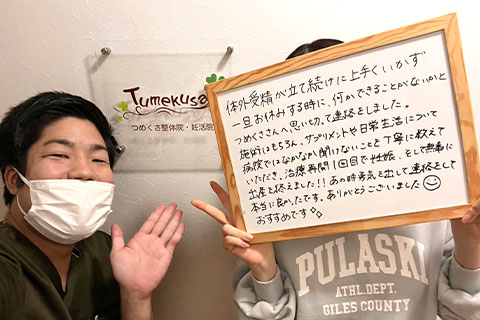 Tumekusa
つめくさ整体院・妊活院
体外受精が立て続けに上手くいかず
一旦お休みする時に、何かできることがないかと
つめくささんへ思い切って連絡をしました。
施術はもちろん、サプリメントや日常生活について
病院ではなかなか聞けないことを丁寧に教えて
いただき、治療再開1回目で妊娠、そして無事に
出産を終えました!!あの時勇気を出して連絡をして
本当に良かったです。ありがとうございました
おすすめです
PULASKI
ATHL.DEPT.
GILES COUNTY